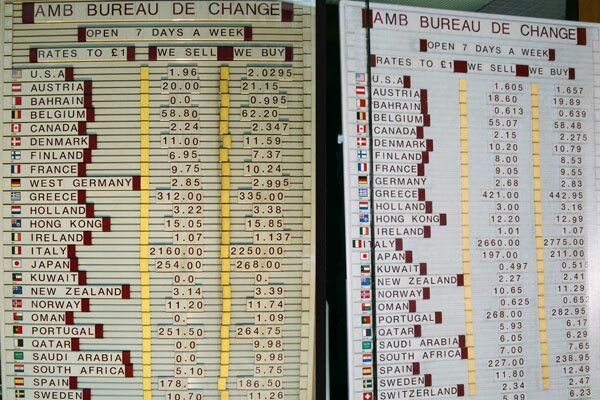 AMB BUREAU DE CHANGE
OPEN 7 DAYS A WEEK
RATES TO £1 WE SELL WE BUY
U.S.A 1.96 2.0295
AUSTRIA 20.00 21.15
BAHRAIN 0.0 0.995
BELGIUM 58.80 62.20
CANADA 2.24 2.347
DENMARK 11.00 11.59
FINLAND 6.95 7.37
FRANCE 9.75 10.24
WEST GERMANY 2.85 2.995
GREECE 312.00 335.00
HOLLAND 3.22 3.38
HONG KONG 15.05 15.85
IRELAND 1.07 1.137
ITALY 2160.00 2250.00
JAPAN 254.00 268.00
KUWAIT 0.0 0.0
NEW ZEALAND 3.14 3.39
NORWAY 11.20 11.74
OMAN 0.0 1.09
PORTUGAL 251.50 264.75
QATAR 0.0 9.98
SAUDI ARABIA 0.0 9.98
SOUTH AFRICA 5.10 5.75
SPAIN 178. 186.50
SWEDEN 10.70 11.26
AMB BUREAU DE CHANGE
OPEN 7 DAYS A WEEK
RATES TO £1 WE SELL WE BUY
U.S.A 1.605 1.657
AUSTRIA 18.60 19.89
BAHRAIN 0.613 0.639
BELGIUM 55.07 58.48
CANADA 2.15 2.275
DENMARK 10.20 10.79
FINLAND 8.00 8.53
FRANCE 9.05 9.55
GERMANY 2.68 2.83
GREECE 421.00 442.95
HOLLAND 3.00 3.16
HONG KONG 12.20 12.99
IRELAND 1.01 1.07
ITALY 2660.00 2775.00
JAPAN 197.00 211.00
KUWAIT 0.497 0.515
NEW ZEALAND 2.27 2.41
NORWAY 10.65 11.29
OMAN 0.625 0.653
PORTUGAL 268.00 282.95
QATAR 5.93 6.17
SAUDI ARABIA 6.05 6.29
SOUTH AFRICA 7.00 7.65
SPAIN 227.00 238.95
SWEDEN 11.80 12.46
SWITZERLAND 2.34 2.47